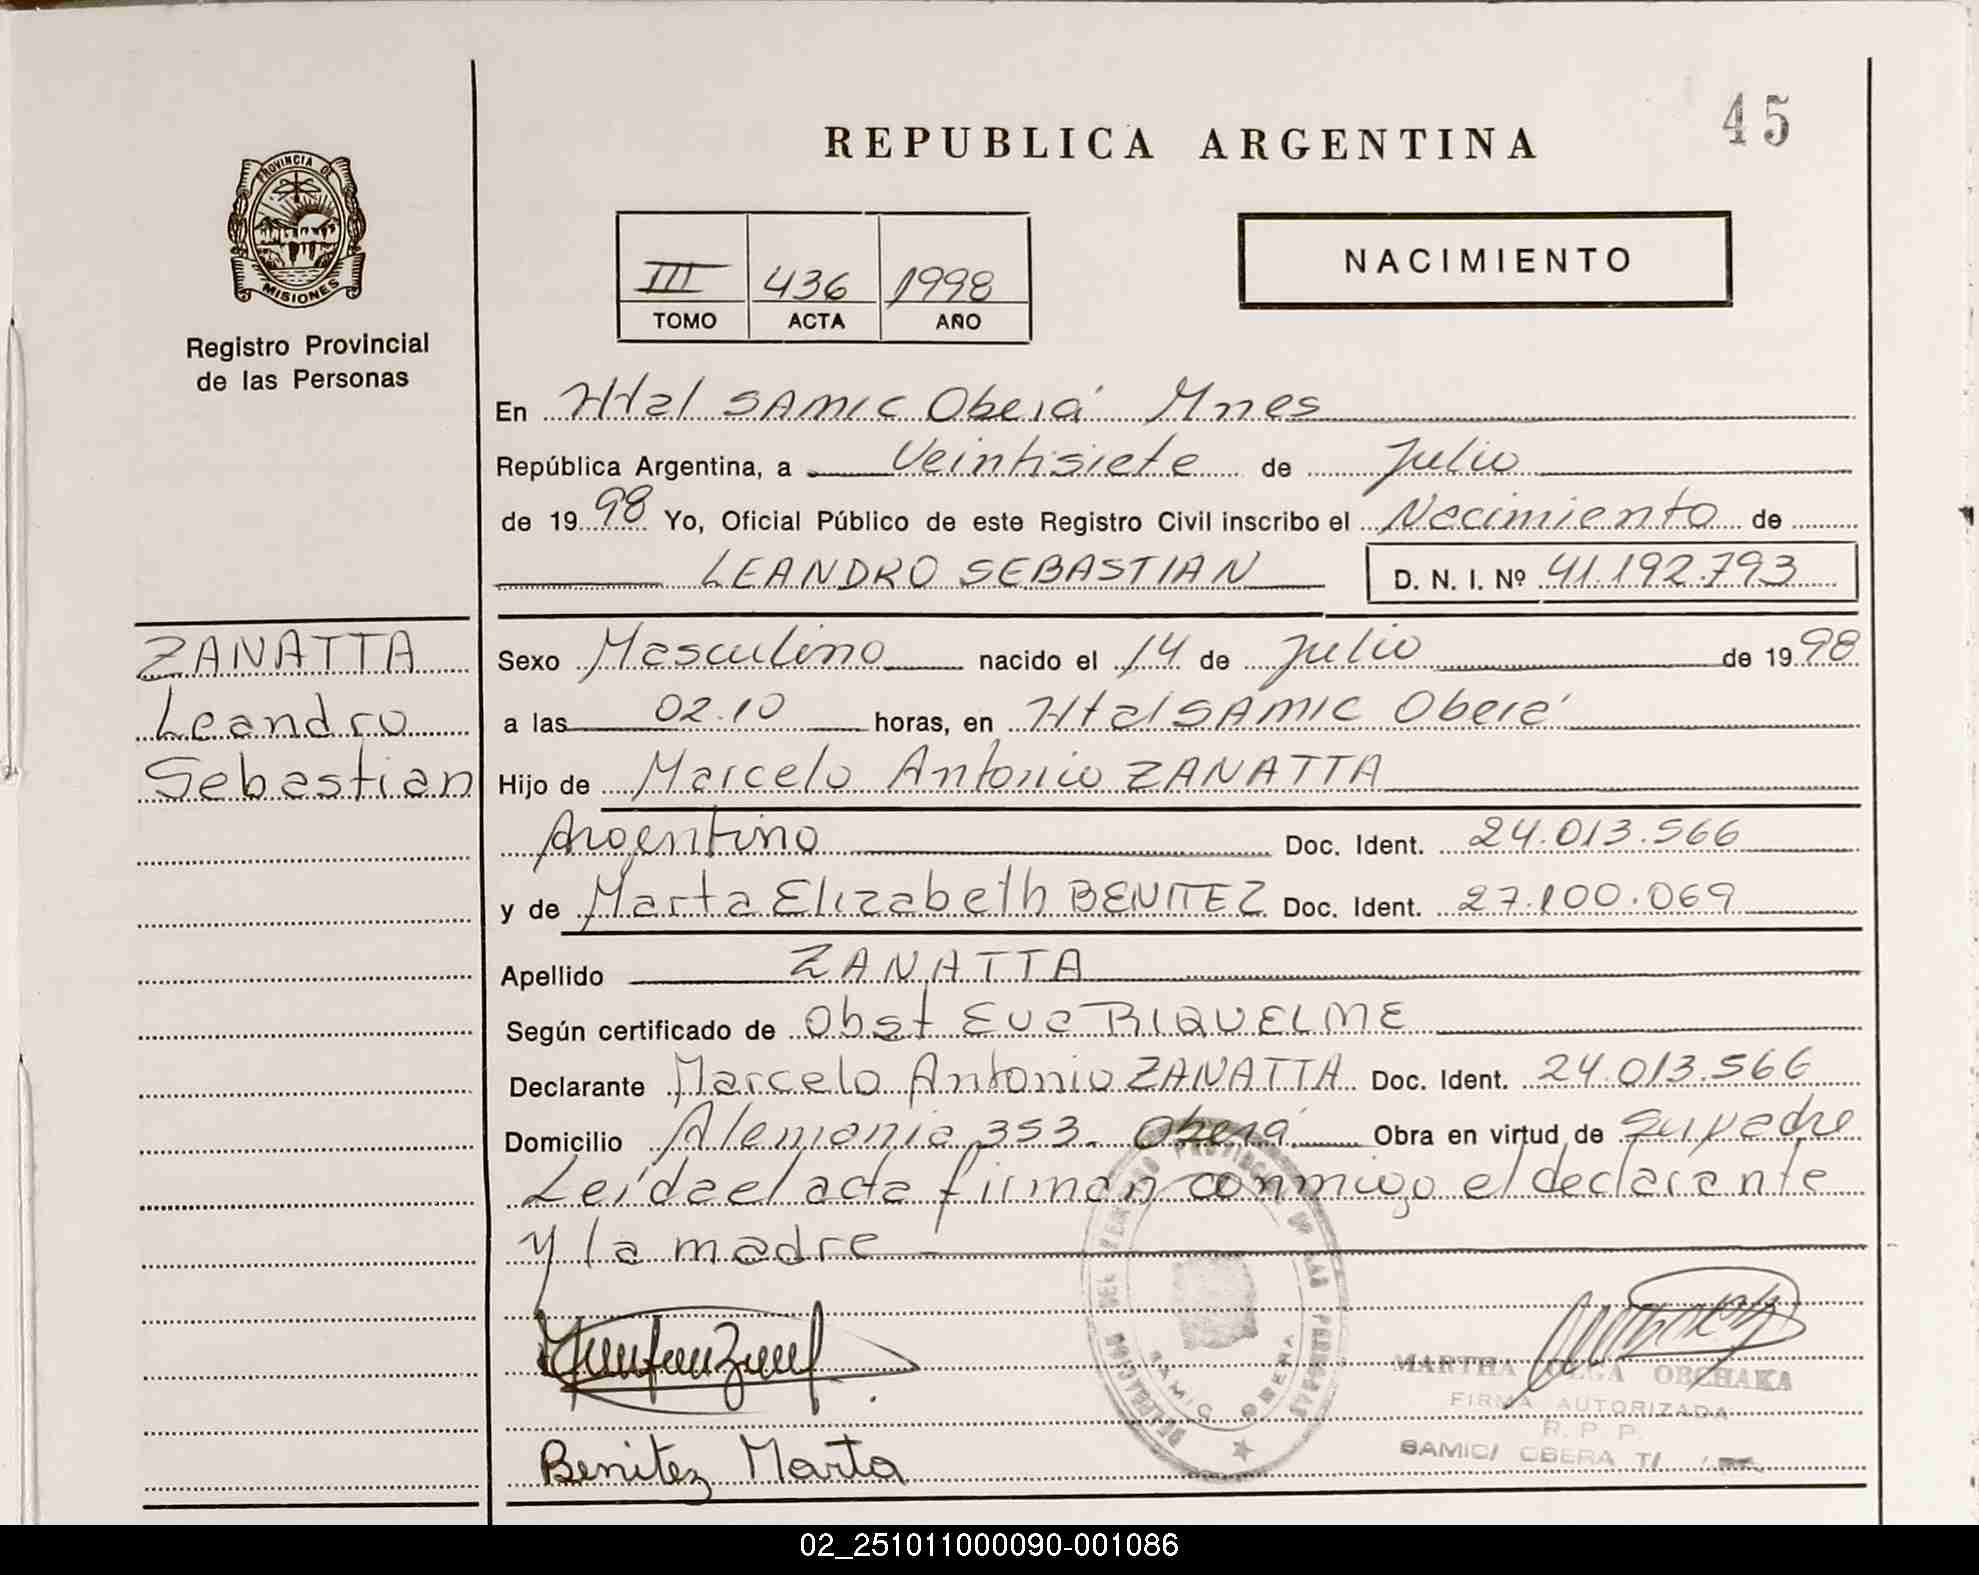 45
REPUBLICA ARGENTINA
PROVINCIA DE
MISIONES
Registro Provincial
de las Personas
III 436 1998
TOMO ACTA AÑO
NACIMIENTO
En Htal SAMIC Oberá Mnes
República Argentina, a Veintisiete de Julio
de 1998 Yo, Oficial Público de este Registro Civil inscribo el Nacimiento de
LEANDRO SEBASTIAN D. N. I. Nº 41.192.793
ZANATTA
Leandro
Sebastian
Sexo Masculino nacido el 14 de Julio de 1998
a las 02.10 horas, en Htal SAMIC Oberá
Hijo de Marcelo Antonio ZANATTA
Argentino Doc. Ident. 24.013.566
y de Marta Elizabeth BENITEZ Doc. Ident. 27.100.069
Apellido ZANATTA
Según certificado de Obst Eva RIQUELME
Declarante Marcelo Antonio ZANATTA Doc. Ident. 24.013.566
Domicilio Alemania 353. Oberá Obra en virtud de su padre
Leída el acta firman conmigo el declarante
y la madre
DELEGACION DEL REGISTRO PROVINCIAL DE LAS PERSONAS
SAMIC OBERA
MARTHA OLGA OBCHAKA
FIRMA AUTORIZADA
R. P. P.
SAMIC/ OBERA T/
Benitez Marta
02_251011000090-001086